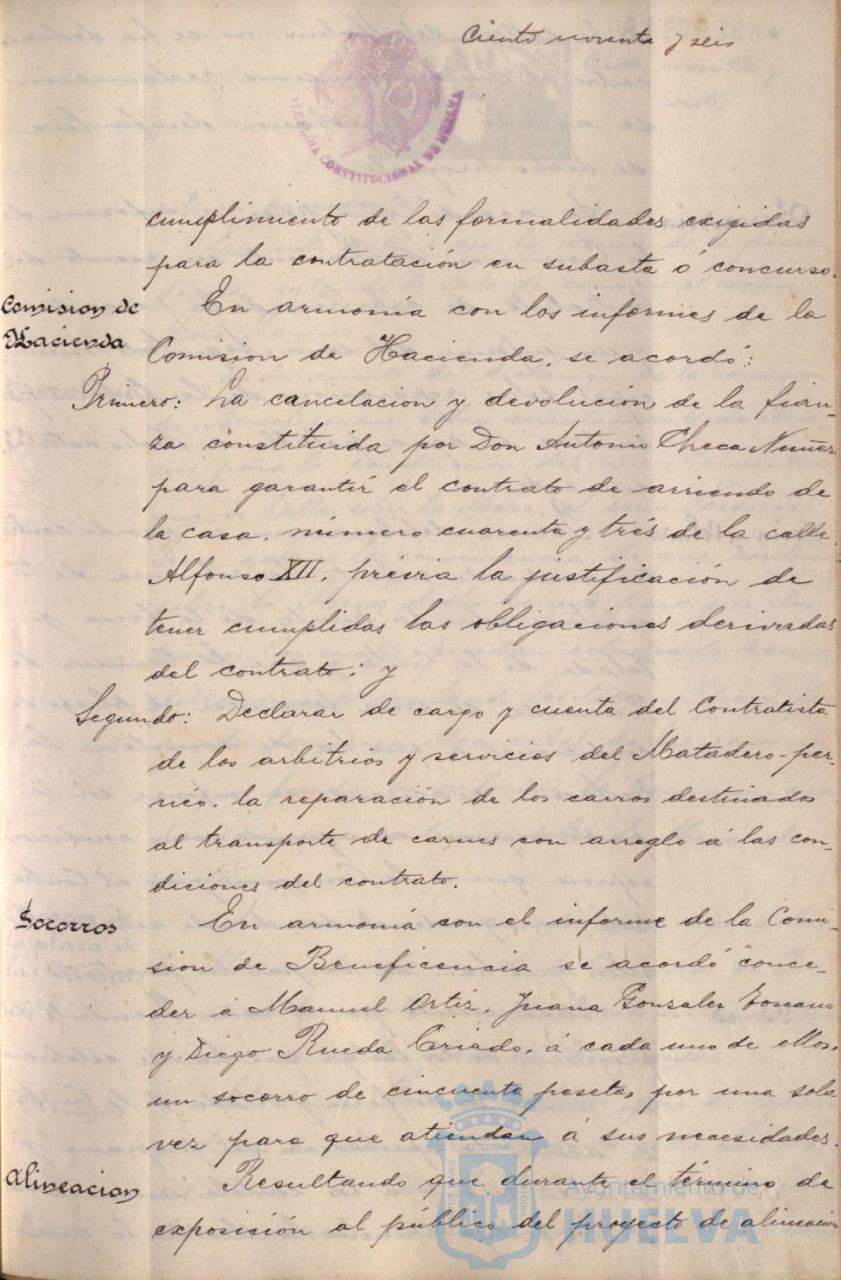 Ciento noventa y seis
ALCALDIA CONSTITUCIONAL DE HUELVA
cumplimiento de las formalidades exigidas
para la contratación en subasta ó concurso.
Comision de
Hacienda
En armonía con los informes de la
Comision de Hacienda, se acordó:
Primero: La cancelacion y devolución de la fian-
za constituida por Don Antonio Checa Nuñez
para garantir el contrato de arriendo de
la casa, número cuarenta y trés de la calle
Alfonso XII, prévia la justificación de
tener cumplidas las obligaciones derivadas
del contrato; y
Segundo: Declarar de cargo y cuenta del Contratista
de los arbitrios y servicios del Matadero-per-
néo, la reparación de los carros destinados
al transporte de carnes con arreglo á las con-
diciones del contrato.
Socorros
En armonía con el informe de la Comi-
sion de Beneficencia se acordó conce-
der á Manuel Ortíz, Juana Gonzalez Toscano
y Diego Rueda Criado, á cada uno de ellos,
un socorro de cincuenta pesetas por una sola
vez para que atiendan á sus necesidades.
Alineacion
Resultando que durante el término de
exposición al público del proyecto de alineación
Ayuntamiento de
HUELVA